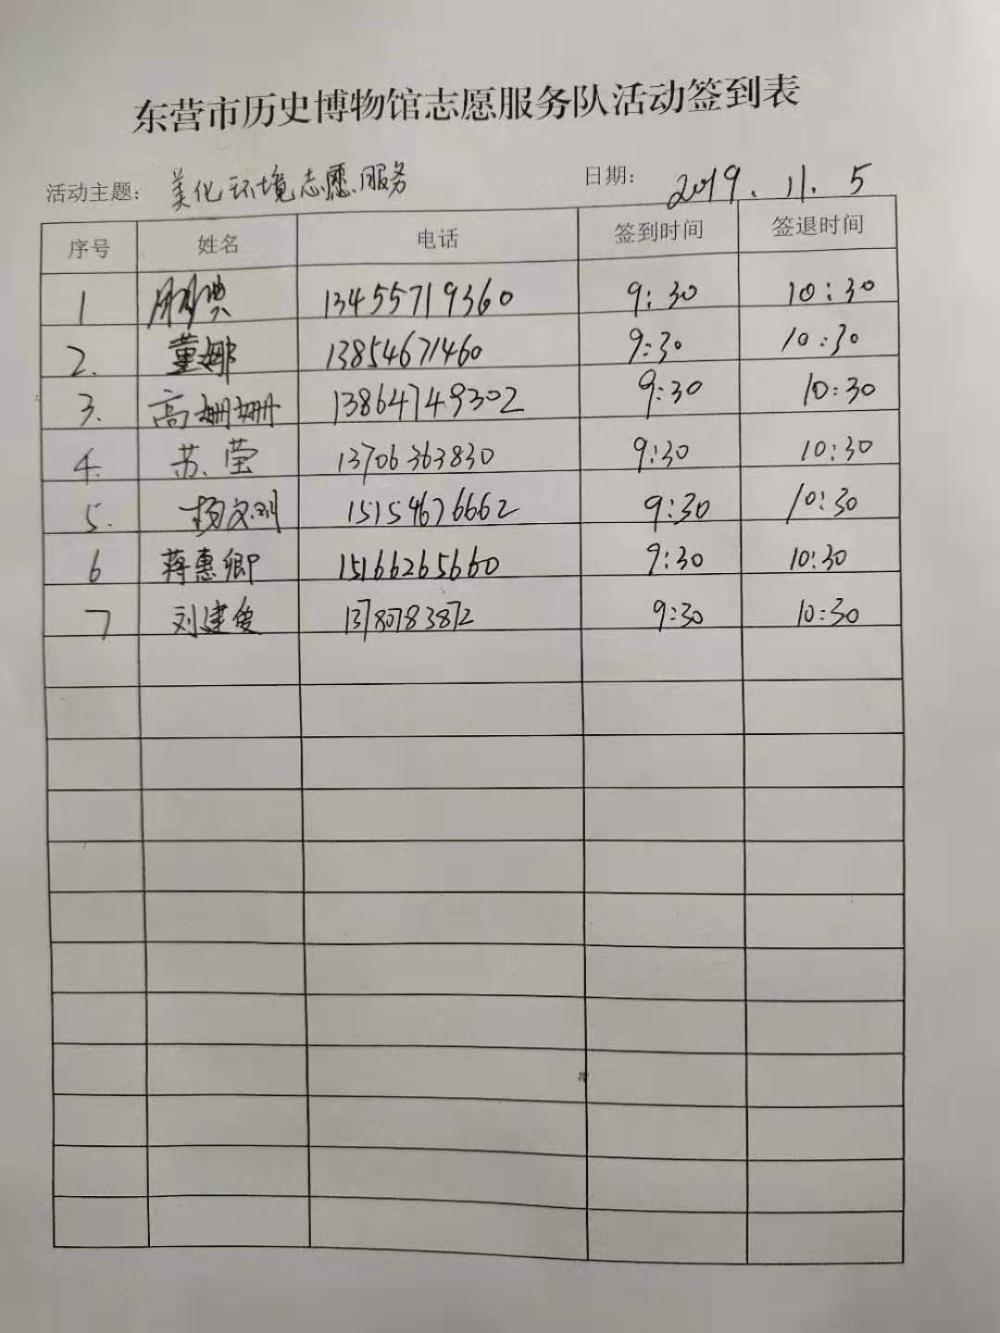 东营市历史博物馆志愿服务队活动签到表
活动主题： 美化环境志愿服务 日期： 2019.11.5
序号 姓名 电话 签到时间 签退时间
1 13455719360 9:30 10:30
2. 董娜 13854671460 9:30 10:30
3. 高姗姗 13864749302 9:30 10:30
4. 苏莹 13706363830 9:30 10:30
5. 15154676662 9:30 10:30
6 蒋惠卿 15166265660 9:30 10:30
7 刘建俊 13780783872 9:30 10:30